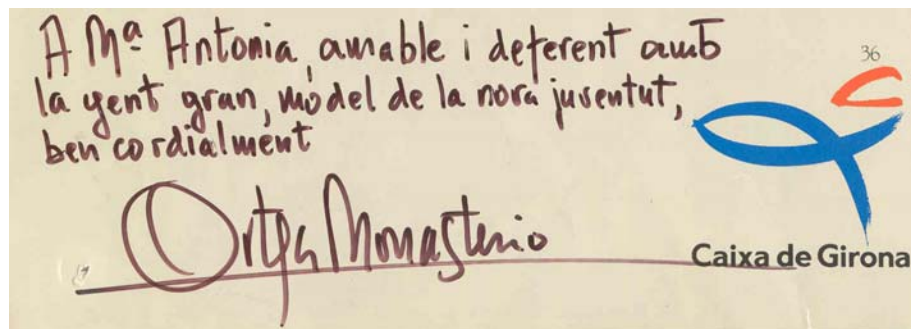 A Mª Antonia, amable i deferent amb
36
la gent gran, model de la nova juventut,
ben cordialment
Ortega Monasterio
Caixa de Girona